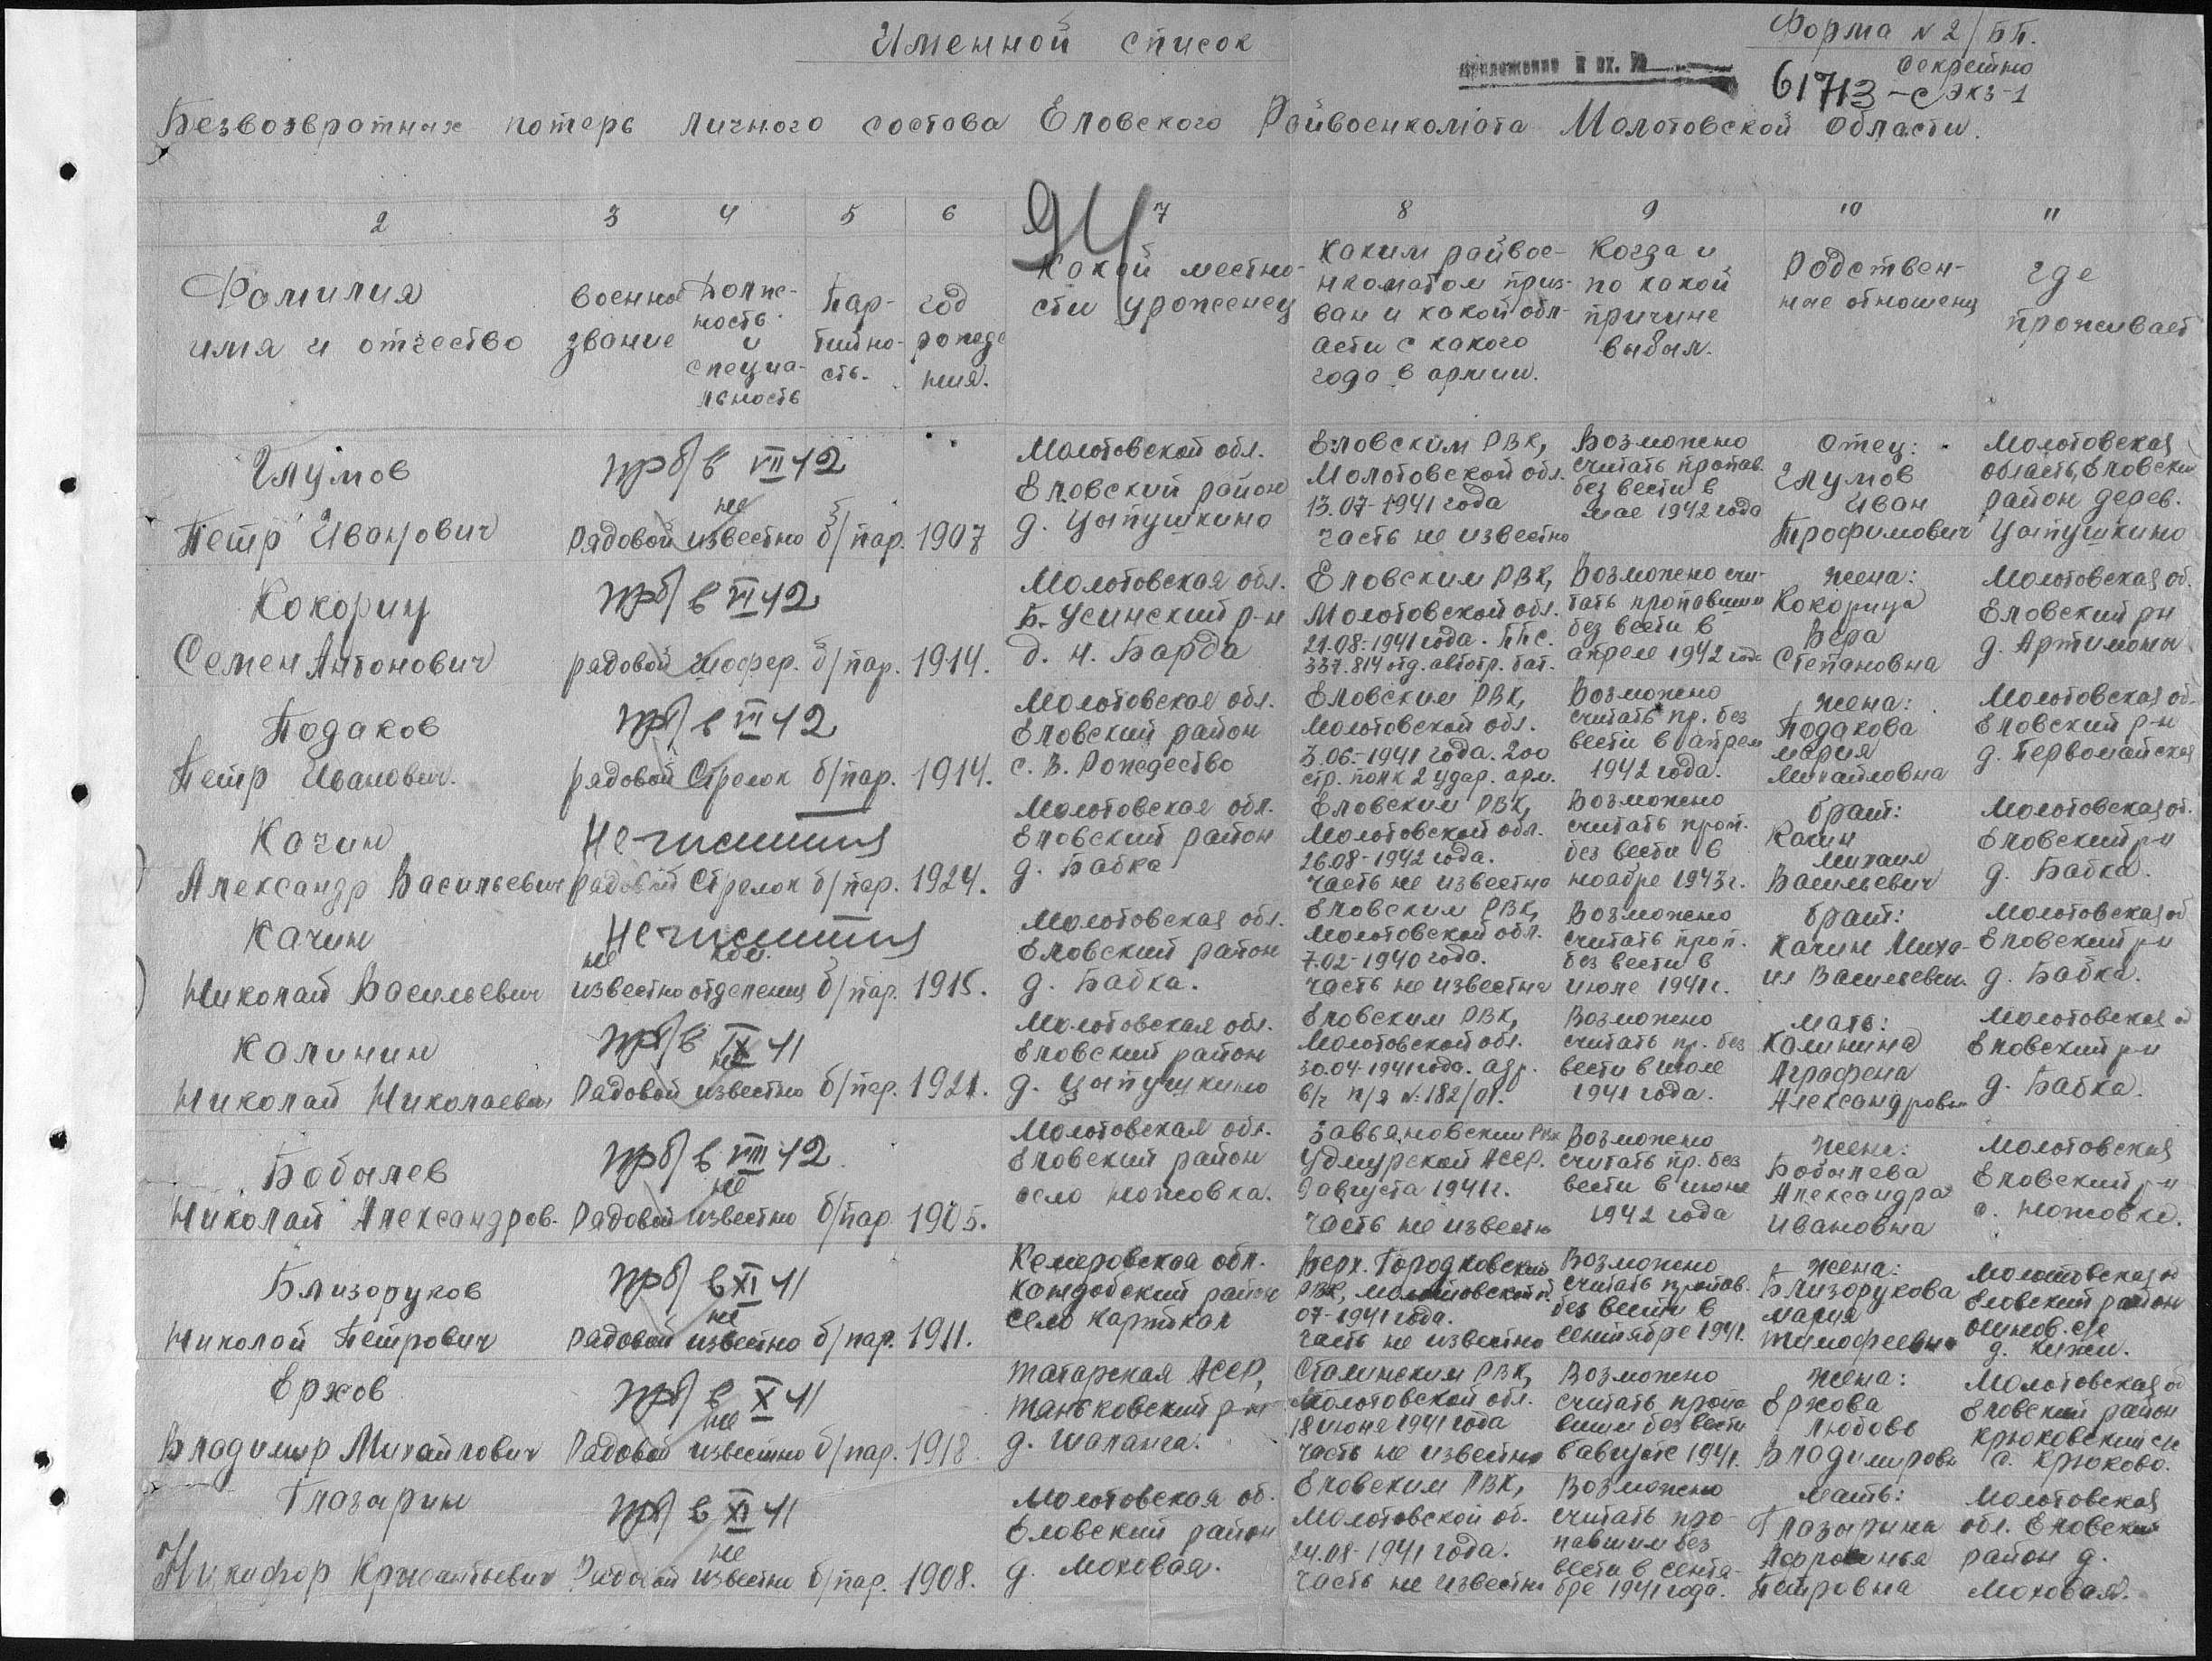 Именной список
Форма N 2/БП.
Секретно
приложение к вх. №
61713-с экз-1
Безвозвратных потерь личного состава Еловского Райвоенкомата Молотовской области.
94
2 3 4 5 6 7 8 9 10 11
Фамилия
имя и отчество
военное
звание
Долж-
ность
и
специа-
льность
Пар-
тийно-
сть.
год
рожде
ния.
Какой местно-
сти уроженец
Каким райвое-
нкоматом приз-
ван и какой обл-
асти с какого
года в армии.
Когда и
по какой
причине
выбыл.
Родствен-
ные отношения
где
проживает
Глумов
Петр Иванович
прб/в VII 42
Рядовой
не
известно
б/пар.
1907
Молотовской обл.
Еловский район
д. Цыпушкино
Еловским РВК,
Молотовской обл.
13.07-1941 года
часть не известно
Возможено
считать пропав.
без вести в
мае 1942 года
Отец:
Глумов
Иван
Трофимович
Молотовская
область, Еловский
район дерев.
Цыпушкино
Кокорин
Семен Антонович
прб/в VI 42
рядовой
шофер.
б/пар.
1914.
Молотовская обл.
Б-Усинский р-н
д. н. Барда
Еловским РВК,
Молотовской обл.
21.08-1941 года. ППС.
337.814 отд. автотр. бат.
Возможено счи-
тать пропавшим
без вести в
апреле 1942 года
жена:
Кокорина
Вера
Степановна
Молотовская об.
Еловский рн
д. Артимоны
Подаков
Петр Иванович.
прб/в VI 42
рядовой
Стрелок
б/пар.
1914.
Молотовская обл.
Еловский район
с. В. Рождество
Еловским РВК,
Молотовской обл.
3.06.-1941 года. 200
стр. полк 2 удар. арм.
Возможено
считать пр. без
вести в апрел
1942 года.
жена:
Подакова
мария
Михайловна
Молотовская об.
Еловский р-н
д. Первомайская
Качин
Александр Васильевич
Не числится
рядовой
Стрелок
б/пар.
1924.
Молотовская обл.
Еловский район
д. Бабка
Еловским РВК,
Молотовской обл.
26.08-1942 года.
часть не известно
Возможено
считать проп.
без вести в
ноабре 1943 г.
брат:
Качин
Михаил
Васильевич
Молотовская об.
Еловский р-н
д. Бабка.
Качин
Николай Васильевич
Не числится
не
известно
ком.
отделения
б/пар.
1915.
Молотовская обл.
Еловский район
д. Бабка.
Еловским РВК,
Молотовской обл.
7.02-1940 года.
часть не известна
Возможено
считать проп.
без вести в
июле 1941 г.
брат:
Качин Миха-
ил Васильевич.
Молотовская об
Еловский р-н
д. Бабка.
Калинин
Николай Николаевич
прб/в IX 41
Рядовой
не
известно
б/пар.
1921.
Молотовская обл.
Еловский район
д. Цыпушкино
Еловским РВК,
Молотовской обл.
30.04-1941 года. адр.
в/ч п/я №182/01.
Возможено
считать пр. без
вести в июле
1941 года.
мать:
Калинина
Аграфена
Александровн
Молотовская об
Еловский р-н
д. Бабка.
Бобылев
Николай Александров.
прб/в VIII 42
Рядовой
не
известно
б/пар
1905.
Молотовская обл.
Еловский район
село ножовка.
Завьяновским РВК
Удмурской АССР.
9 августа 1941 г.
часть не известн
Возможено
считать пр. без
вести в июне
1942 года
жена:
Бобылева
Александра
Ивановна
Молотовская
Еловский р-н
с. ножовка.
Близоруков
Николой Петрович
прб/в XI 41
рядовой
не
известно
б/пар.
1911.
Кемеровская обл.
Кондобский район
село Картокал
Верх. Городковский
РВК, молотовской о.
07-1941 года.
часть не известно
Возможено
считать пропав.
без вести в
сентябре 1941.
жена:
Близорукова
мария
Тимофеевна
Молотовская о
Еловский район
Осинов. с/с
д. Кижи.
Ержов
Владимир Михайлович
прб/в X 41
Рядовой
не
известно
б/пар.
1918
Татарская АССР,
Таньковский р-н
д. Шаланга.
Сталинским РВК,
Молотовской обл.
18 июня 1941 года
часть не известно
Возможено
считать пропа
вшим без вести
в августе 1941.
жена:
Ержова
Любовь
Владимировн
Молотовская об
Еловский район
Крюковский с/с
с. Крюково.
Глазырин
Никифор
прб/в XI 41
Рядовой
не
известно
б/пар.
1908.
Молотовская об.
Еловский район
д. Моховая.
Еловским РВК,
Молотовской об.
24.08-1941 года.
часть не известно
Возможено
считать про-
павшим без
вести в сентя-
бре 1941 года.
мать:
Глазырина
Афросинья
Петровна
Молотовская
обл. Еловский
район д.
Моховая.